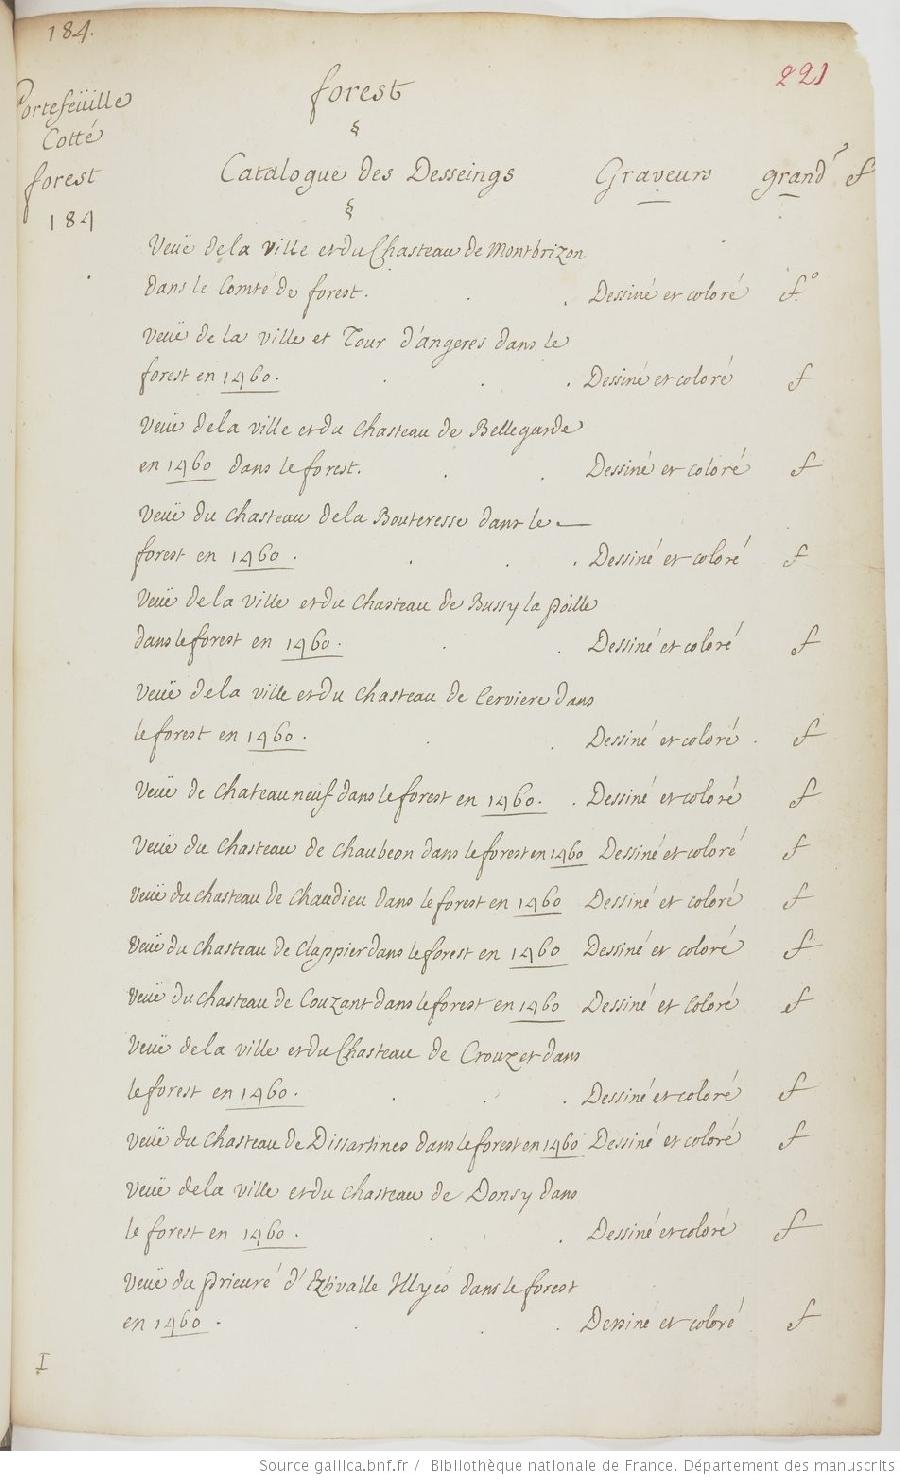 184.
221
Portefeüille
Cotté
forest
184
forest
§
Catalogue des Desseings Graveurs grandr f
§
Veuë de la ville et du Chasteau de Montbrizon
dans le Comté de forest. Dessiné et coloré fo
Veuë de la ville et Tour d'angeres dans le
forest en 1460. Dessiné et coloré f
Veuë de la ville et du chasteau de Bellegarde
en 1460 dans le forest. Dessiné et coloré f
Veuë du chasteau de la Bouteresse dans le
forest en 1460. Dessiné et coloré f
Veuë de la ville et du chasteau de Bussy la poille
dans le forest en 1460. Dessiné et coloré f
Veuë de la ville et du chasteau de Cerviere dans
le forest en 1460. Dessiné et coloré. f
Veuë de chateauneuf dans le forest en 1460. Dessiné et coloré f
Veuë du chasteau de chaubeon dans le forest en 1460 Dessiné et coloré f
Veuë du chasteau de chaudieu dans le forest en 1460 Dessiné et coloré f
Veuë du chasteau de Clappier dans le forest en 1460 Dessiné et coloré f
Veuë du chasteau de Couzant dans le forest en 1460 Dessiné et coloré f
Veuë de la ville et du Chasteau de Crouzet dans
le forest en 1460. Dessiné et coloré f
Veuë du chasteau de Dissartines dans le forest en 1460 Dessiné et coloré f
Veuë de la ville et du chasteau de Donsy dans
le forest en 1460. Dessiné et coloré f
Veuë du prieuré d' Illyes dans le forest
en 1460. Dessiné et coloré f
I
Source gallica.bnf.fr / Bibliothèque nationale de France. Département des manuscrits